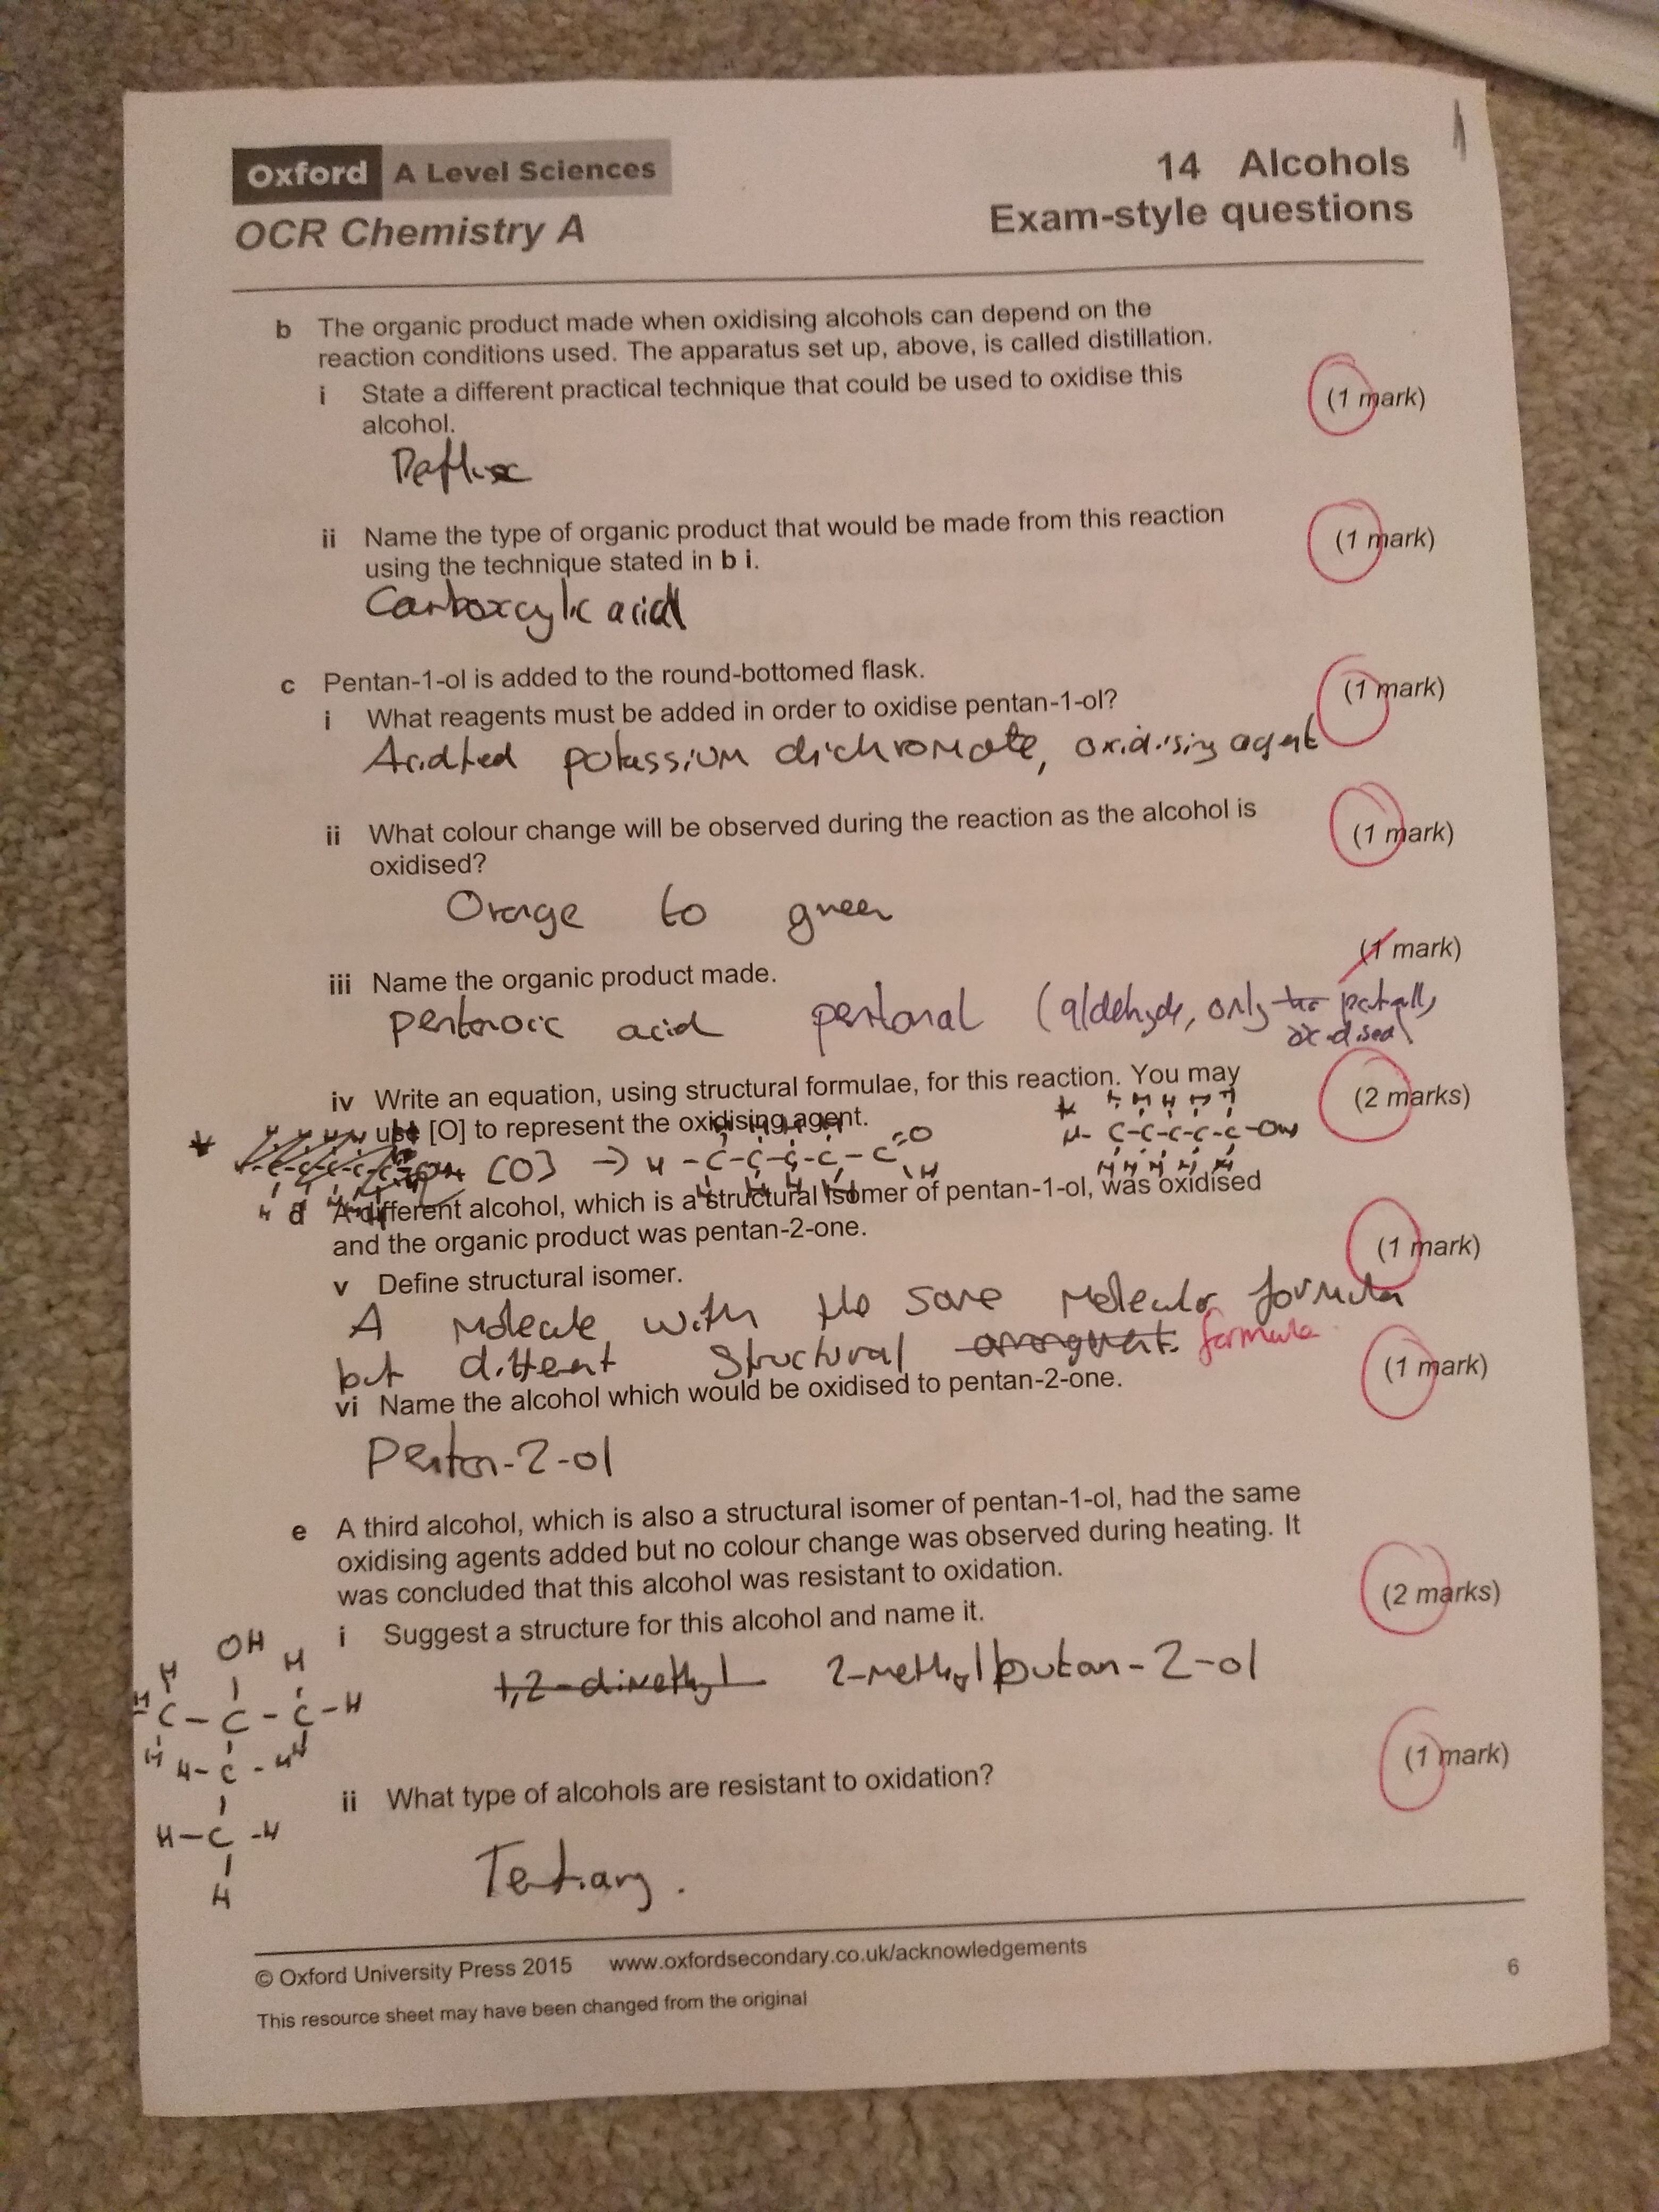 Oxford A Level Sciences
OCR Chemistry A
14 Alcohols
Exam-style questions
b The organic product made when oxidising alcohols can depend on the
reaction conditions used. The apparatus set up, above, is called distillation.
i State a different practical technique that could be used to oxidise this
alcohol. (1 mark)
Reflux
ii Name the type of organic product that would be made from this reaction
using the technique stated in b i. (1 mark)
Carboxcylic acid
c Pentan-1-ol is added to the round-bottomed flask.
i What reagents must be added in order to oxidise pentan-1-ol? (1 mark)
potassium dichromate, oxidising agent
ii What colour change will be observed during the reaction as the alcohol is
oxidised? (1 mark)
Orange to green
iii Name the organic product made. (1 mark)
pentanoic acid pentanal (aldehyde, only partially
oxidised)
iv Write an equation, using structural formulae, for this reaction. You may
use [O] to represent the oxidising agent. (2 marks)
H H H H H
H-C-C-C-C-C-OH
H H H H H
[O] → H-C-C-C-C-C=O
H
d A different alcohol, which is a structural isomer of pentan-1-ol, was oxidised
and the organic product was pentan-2-one.
v Define structural isomer. (1 mark)
A molecule with the same molecular formula
but different structural arrangement. formula
vi Name the alcohol which would be oxidised to pentan-2-one. (1 mark)
Pentan-2-ol
e A third alcohol, which is also a structural isomer of pentan-1-ol, had the same
oxidising agents added but no colour change was observed during heating. It
was concluded that this alcohol was resistant to oxidation.
i Suggest a structure for this alcohol and name it. (2 marks)
1,2-dimethyl 2-methylbutan-2-ol
OH
H H
H C-C-C-H
H H-C-H H
H-C-H
H
ii What type of alcohols are resistant to oxidation? (1 mark)
Tertiary.
© Oxford University Press 2015 www.oxfordsecondary.co.uk/acknowledgements
This resource sheet may have been changed from the original
6